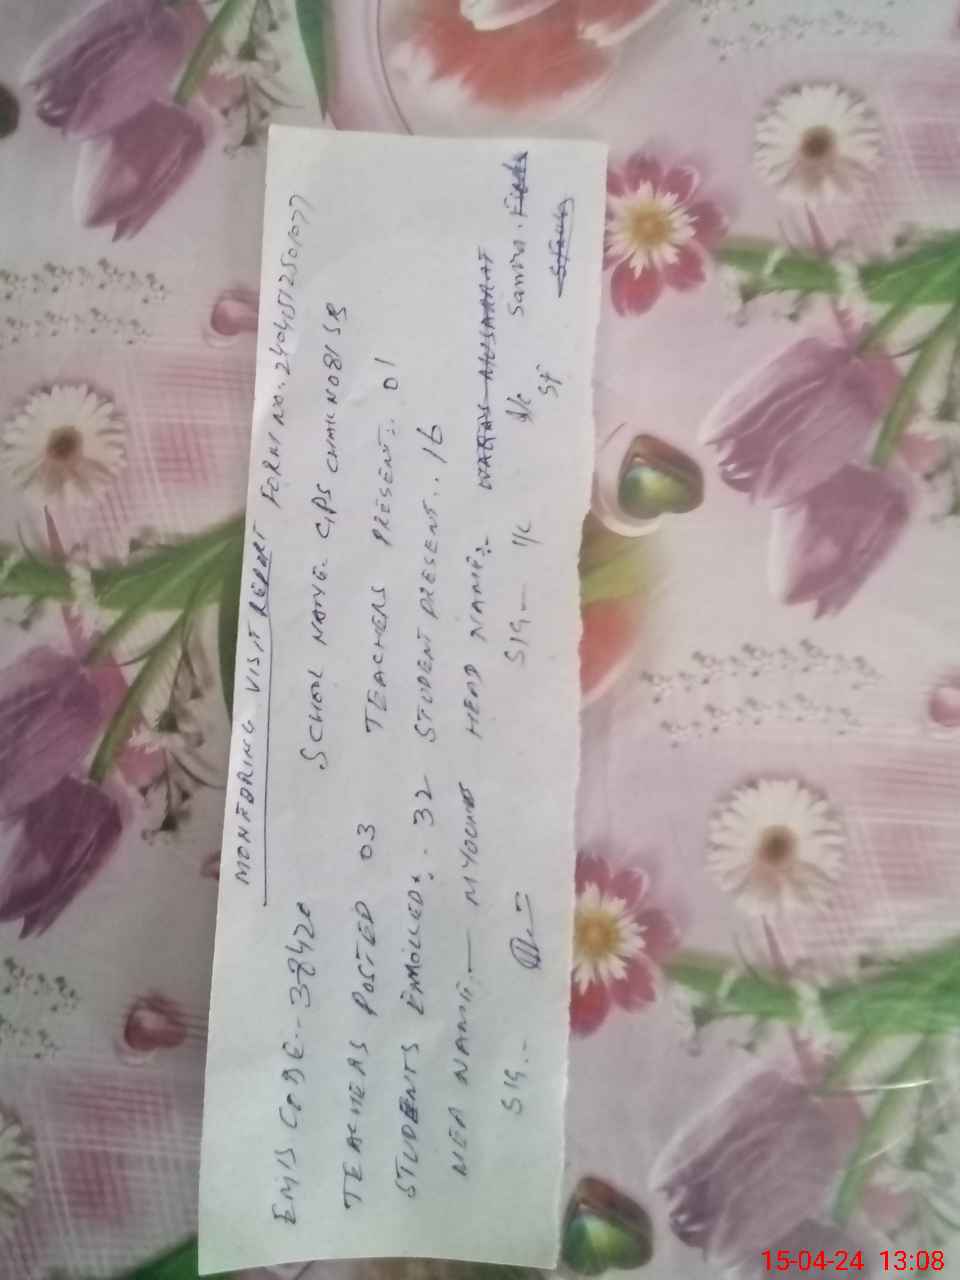 MONEDRING VISIT REPORT FORM NO. 240401250077
EMIS CODE- 38420 SCHOOL NAME- GPS CHAK NO 81 SB
TEACHERS POSTED 03 TEACHERS PRESENT:. 01
STUDENTS ENROLLED:. 32 STUDENT PRESENT.. 16
MEA NAME:- HEAD NAME:- WAQAS MUSARRAT
SIG.- SIG- I/C Samina
15-04-24 13:08